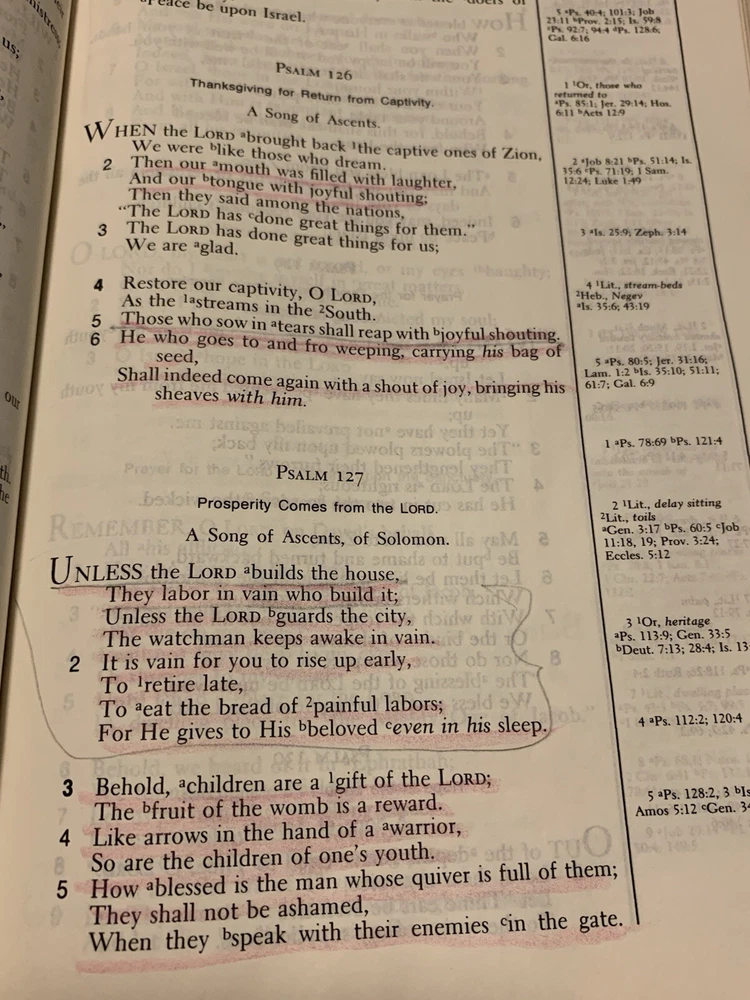 Peace be upon Israel.
PSALM 126
Thanksgiving for Return from Captivity.
A Song of Ascents.
WHEN the LORD ᵃbrought back ¹the captive ones of Zion,
We were ᵇlike those who dream.
2 Then our ᵃmouth was filled with laughter,
And our ᵇtongue with joyful shouting;
Then they said among the nations,
“The LORD has ᶜdone great things for them.”
3 The LORD has done great things for us;
We are ᵃglad.
4 Restore our captivity, O LORD,
As the ¹ᵃstreams in the ²South.
5 Those who sow in ᵃtears shall reap with ᵇjoyful shouting.
6 He who goes to and fro weeping, carrying his bag of
seed,
Shall indeed come again with a shout of joy, bringing his
sheaves with him.
PSALM 127
Prosperity Comes from the LORD.
A Song of Ascents, of Solomon.
UNLESS the LORD ᵃbuilds the house,
They labor in vain who build it;
Unless the LORD ᵇguards the city,
The watchman keeps awake in vain.
2 It is vain for you to rise up early,
To ¹retire late,
To ᵃeat the bread of ²painful labors;
For He gives to His ᵇbeloved ᶜeven in his sleep.
3 Behold, ᵃchildren are a ¹gift of the LORD;
The ᵇfruit of the womb is a reward.
4 Like arrows in the hand of a ᵃwarrior,
So are the children of one’s youth.
5 How ᵃblessed is the man whose quiver is full of them;
They shall not be ashamed,
When they ᵇspeak with their enemies ᶜin the gate.
5 ᵃPs. 40:4; 101:3; Job
23:11 ᵇProv. 2:15; Is. 59:8
ᶜPs. 92:7; 94:4 ᵈPs. 128:6;
Gal. 6:16
1 ¹Or, those who
returned to
ᵃPs. 85:1; Jer. 29:14; Hos.
6:11 ᵇActs 12:9
2 ᵃJob 8:21 ᵇPs. 51:14; Is.
35:6 ᶜPs. 71:19; 1 Sam.
12:24; Luke 1:49
3 ᵃIs. 25:9; Zeph. 3:14
4 ¹Lit., stream-beds
²Heb., Negev
ᵃIs. 35:6; 43:19
5 ᵃPs. 80:5; Jer. 31:16;
Lam. 1:2 ᵇIs. 35:10; 51:11;
61:7; Gal. 6:9
1 ᵃPs. 78:69 ᵇPs. 121:4
2 ¹Lit., delay sitting
²Lit., toils
ᵃGen. 3:17 ᵇPs. 60:5 ᶜJob
11:18, 19; Prov. 3:24;
Eccles. 5:12
3 ¹Or, heritage
ᵃPs. 113:9; Gen. 33:5
ᵇDeut. 7:13; 28:4; Is. 13
4 ᵃPs. 112:2; 120:4
5 ᵃPs. 128:2, 3 ᵇIs
Amos 5:12 ᶜGen. 3